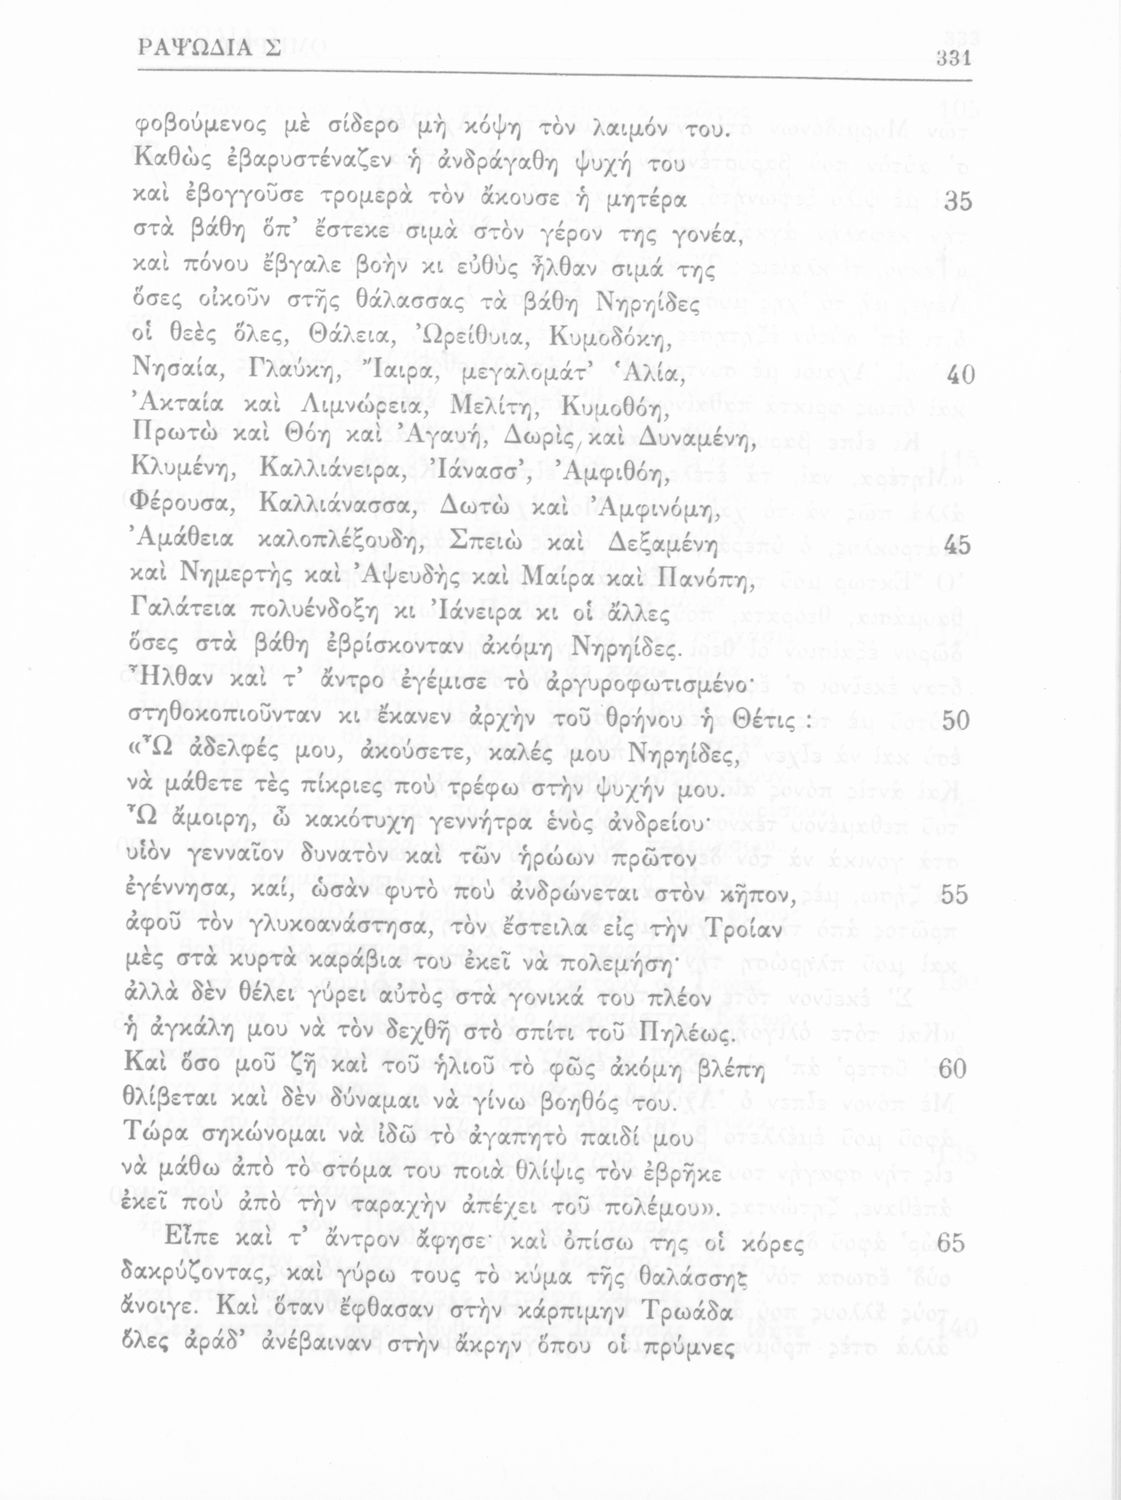 ΡΑΨΩΔΙΑ Σ
331
φοβούμενος μὲ σίδερο μὴ κόψη τὸν λαιμόν του.
Καθὼς ἐβαρυστέναζεν ἡ ἀνδράγαθη ψυχή του
καὶ ἐβογγοῦσε τρομερὰ τὸν ἄκουσε ἡ μητέρα 35
στὰ βάθη ὅπ’ ἔστεκε σιμὰ στὸν γέρον της γονέα,
καὶ πόνου ἔβγαλε βοὴν κι εὐθὺς ἦλθαν σιμά της
ὅσες οἰκοῦν στῆς θάλασσας τὰ βάθη Νηρηίδες
οἱ θεὲς ὅλες, Θάλεια, Ὠρείθυια, Κυμοδόκη,
Νησαία, Γλαύκη, Ἴαιρα, μεγαλομάτ’ Ἁλία, 40
Ἀκταία καὶ Λιμνώρεια, Μελίτη, Κυμοθόη,
Πρωτὼ καὶ Θόη καὶ Ἀγαυή, Δωρὶς, καὶ Δυναμένη,
Κλυμένη, Καλλιάνειρα, Ἰάνασσ’, Ἀμφιθόη,
Φέρουσα, Καλλιάνασσα, Δωτὼ καὶ Ἀμφινόμη,
Ἀμάθεια καλοπλέξουδη, Σπειὼ καὶ Δεξαμένη 45
καὶ Νημερτὴς καὶ Ἀψευδὴς καὶ Μαίρα καὶ Πανόπη,
Γαλάτεια πολυένδοξη κι Ἰάνειρα κι οἱ ἄλλες
ὅσες στὰ βάθη ἐβρίσκονταν ἀκόμη Νηρηίδες.
Ἦλθαν καὶ τ’ ἄντρο ἐγέμισε τὸ ἀργυροφωτισμένο·
στηθοκοπιοῦνταν κι ἔκανεν ἀρχὴν τοῦ θρήνου ἡ Θέτις : 50
«Ὦ ἀδελφές μου, ἀκούσετε, καλές μου Νηρηίδες,
νὰ μάθετε τὲς πίκριες ποὺ τρέφω στὴν ψυχήν μου.
Ὦ ἄμοιρη, ὦ κακότυχη γεννήτρα ἑνὸς ἀνδρείου·
υἱὸν γενναῖον δυνατὸν καὶ τῶν ἡρώων πρῶτον
ἐγέννησα, καί, ὡσὰν φυτὸ ποὺ ἀνδρώνεται στὸν κῆπον, 55
ἀφοῦ τὸν γλυκοανάστησα, τὸν ἔστειλα εἰς τὴν Τροίαν
μὲς στὰ κυρτὰ καράβια του ἐκεῖ νὰ πολεμήση·
ἀλλὰ δὲν θέλει γύρει αὐτὸς στὰ γονικά του πλέον
ἡ ἀγκάλη μου νὰ τὸν δεχθῆ στὸ σπίτι τοῦ Πηλέως.
Καὶ ὅσο μοῦ ζῆ καὶ τοῦ ἡλιοῦ τὸ φῶς ἀκόμη βλέπη 60
θλίβεται καὶ δὲν δύναμαι νὰ γίνω βοηθός του.
Τώρα σηκώνομαι νὰ ἰδῶ τὸ ἀγαπητὸ παιδί μου
νὰ μάθω ἀπὸ τὸ στόμα του ποιὰ θλίψις τὸν ἐβρῆκε
ἐκεῖ ποὺ ἀπὸ τὴν ταραχὴν ἀπέχει τοῦ πολέμου».
Εἶπε καὶ τ’ ἄντρον ἄφησε· καὶ ὀπίσω της οἱ κόρες 65
δακρύζοντας, καὶ γύρω τους τὸ κύμα τῆς θαλάσσης
ἄνοιγε. Καὶ ὅταν ἔφθασαν στὴν κάρπιμην Τρωάδα
ὅλες ἀράδ’ ἀνέβαιναν στὴν ἄκρην ὅπου οἱ πρύμνες